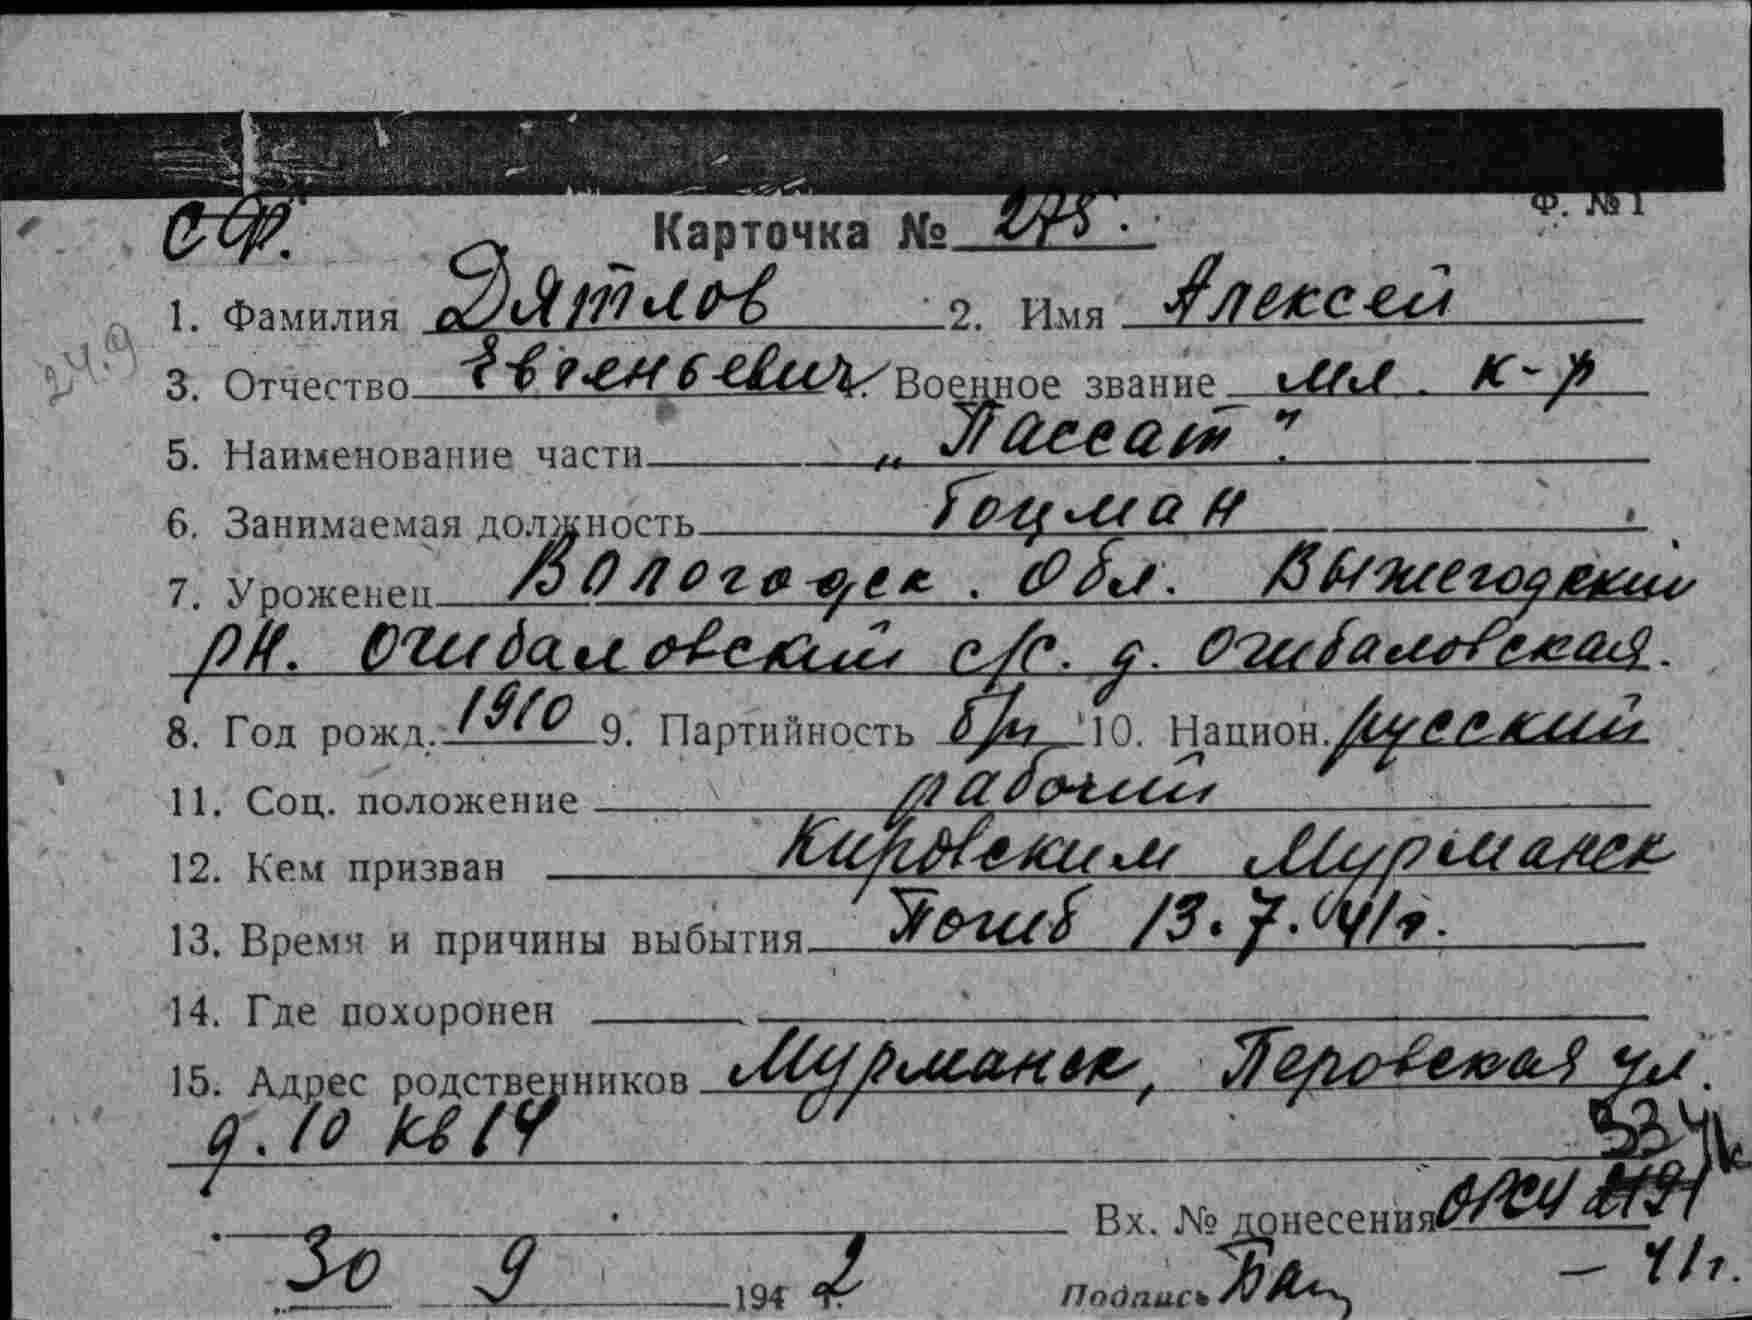 Ф. № 1
СФ. Карточка № 275.
1. Фамилия Дятлов 2. Имя Алексей
24.9
3. Отчество Евгеньевич 4. Военное звание мл. к-р
5. Наименование части „Пассат"
6. Занимаемая должность боцман
7. Уроженец Вологодск. Обл. Выжегодский
рн. Огибаловский с/с. д. Огибаловская.
8. Год рожд. 1910 9. Партийность б/п 10. Национ. русский
11. Соц. положение рабочий
12. Кем призван Кировским Мурманск
13. Время и причины выбытия Погиб 13.7.41г.
14. Где похоронен
15. Адрес родственников Мурманск, Перовская ул.
д. 10 кв 14
Вх. № донесения
30 9 1942 г. Подпись
– 41г.